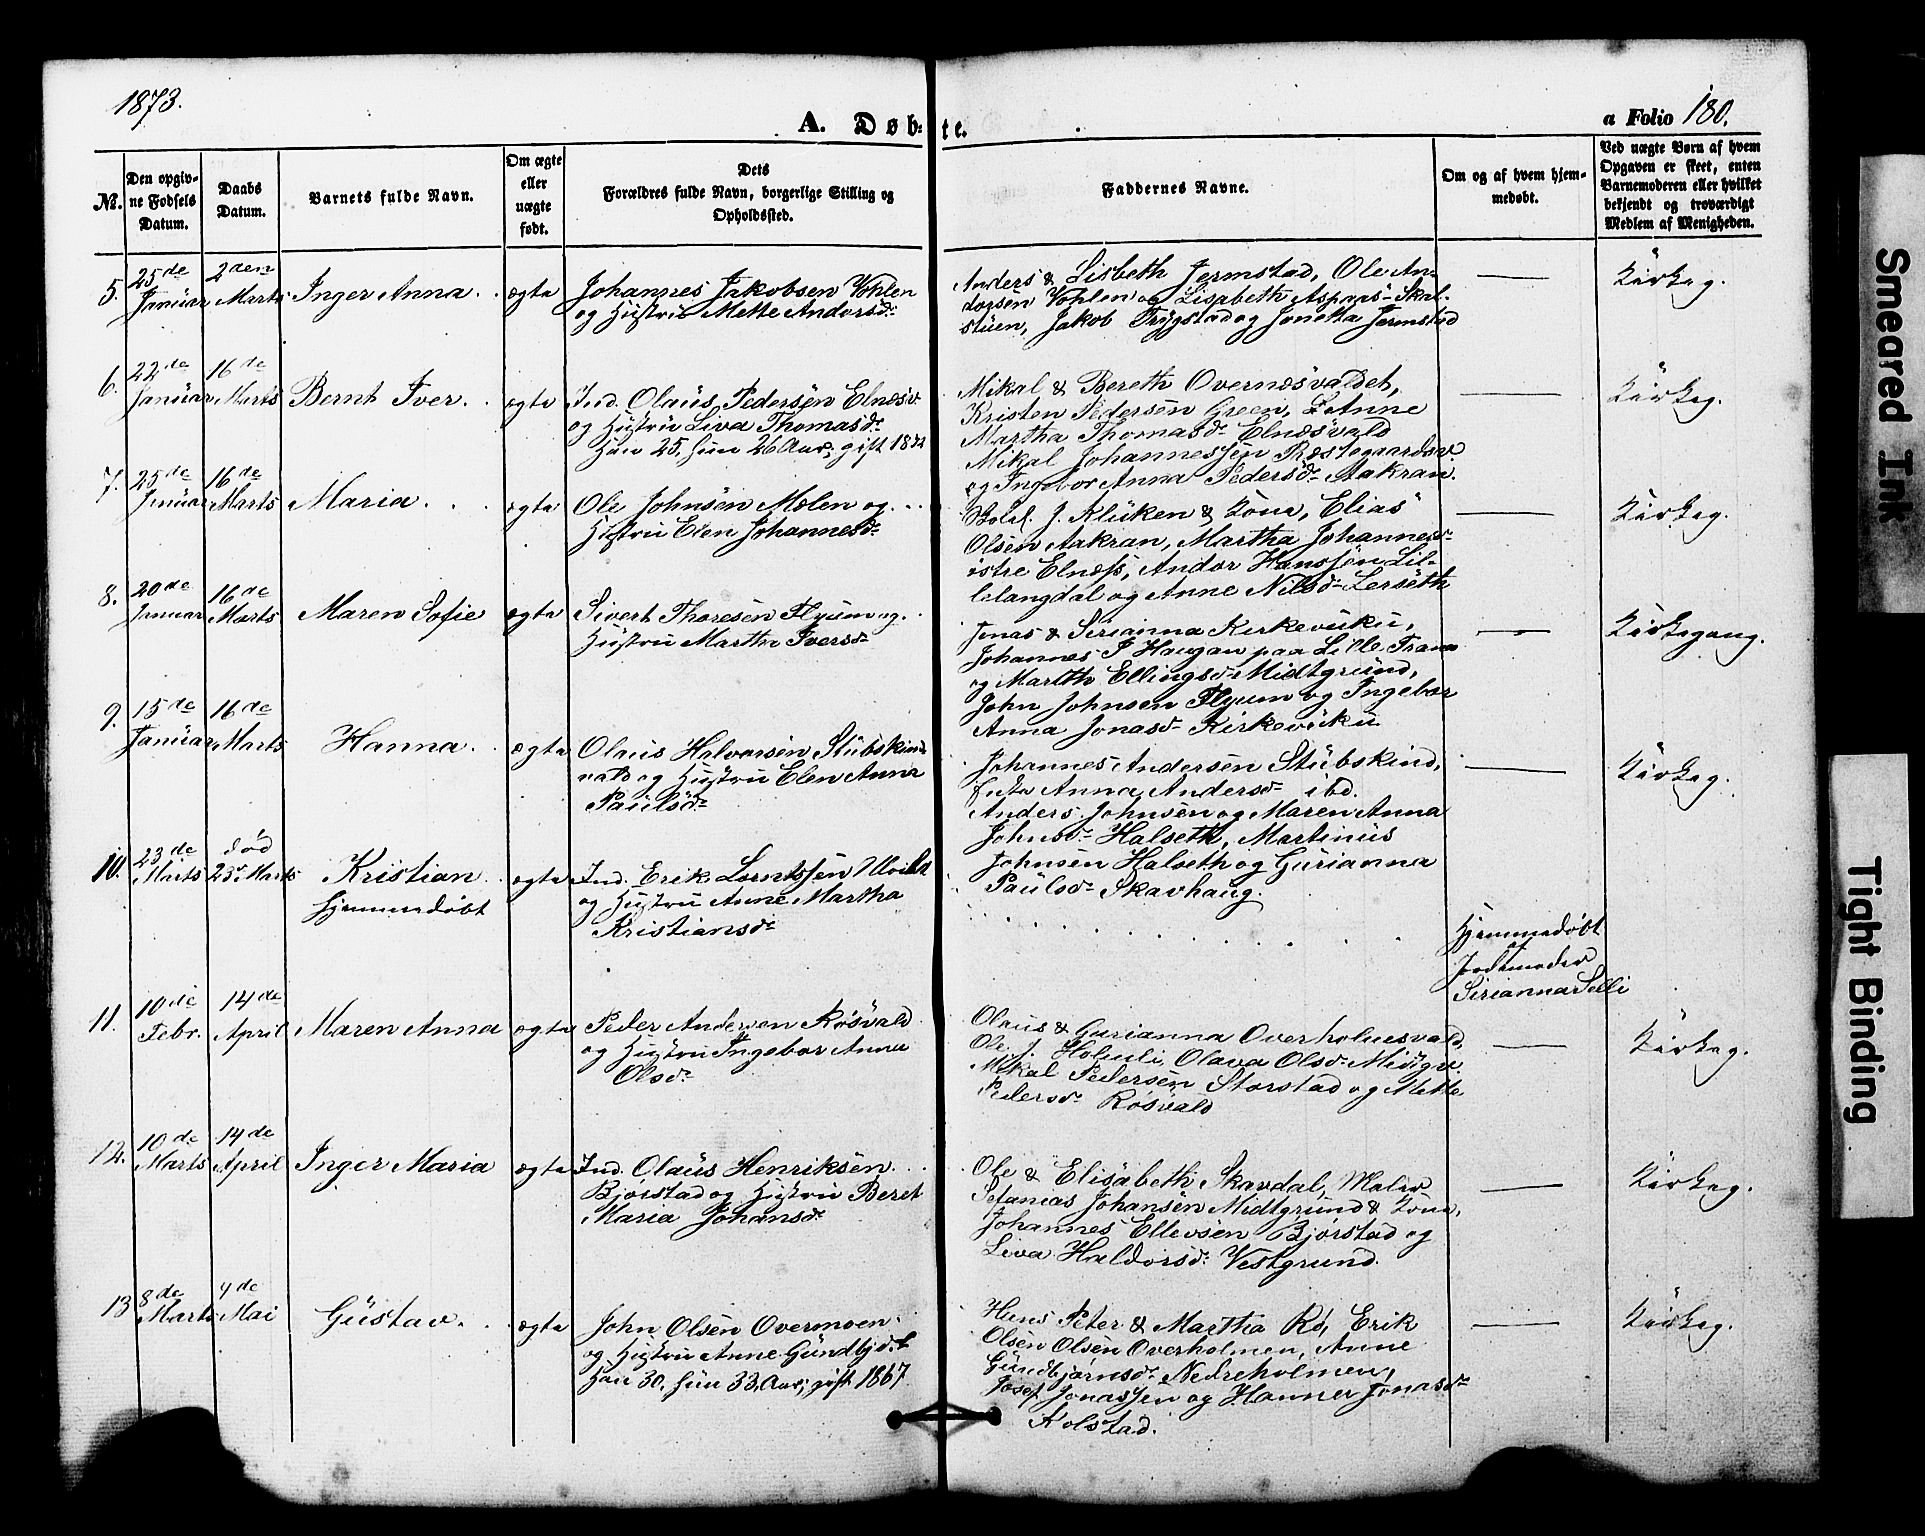 1873.
A. Døb-te.
a Folio 180.
№.
Den opgiv-
ne Fødsels
Datum.
Daabs
Datum.
Barnets fulde Navn.
Om ægte
eller
uægte
født.
Dets
Forældres fulde Navn, borgerlige Stilling og
Opholdssted.
Faddernes Navne.
Om og af hvem hjem-
medøbt.
Ved uægte Børn af hvem
Opgaven er skeet, enten
Barnemoderen eller hvilket
bekjendt og troværdigt
Medlem af Menigheden.
5. 25de Januar 2den Marts Inger Anna. ægte
Johannes Jakobsen Vohlen
og Hustru Mette Andersd.
Anders & Lisbeth Jermstad, Ole An-
dersen Vohlen og Lisabeth Aspaas-Skal-
stuen, Jakob Trygstad og Jonetta Jermstad
Kirkeg.
6. 22de Januar 16de Marts Bernt Iver. ægte
Ind. Olaus Pedersen Elnesv.
og Hustru Liva Thomasd.
Han 25, hun 26 Aar, gift 1872
Mikal & Bereth Overnesvaldet,
Kristen Pedersen Green, Anne
Martha Thomasd. Elnesvald
Mikal Johannessen Præstegaardsv.
og Ingebor Anna Pedersd. Aakran.
Kirkeg.
7. 25de Januar 16de Marts Maria. ægte
Ole Johnsen Melen og
Hustru Elen Johannesd.
J. Klüken & Kone, Elias
Olsen Aakran, Martha Johannesd.
østre Elness, Andor Hanssen Lil-
lelangdal og Anne Nilsd. Lerseth
Kirkeg.
8. 20de Januar 16de Marts Maren Sofie ægte
Sivert Thoresen Flyum og
Hustru Martha Iversd.
Jonas & Sirianna Kirkevuku,
Johannes P Haugan paa Lille Trana
og Marith Ellingsd. Midtgrund,
John Johnsen Flyum og Ingebor
Anna Jonasd. Kirkevuku
Kirkegang.
9. 15de Januar 16de Marts Hanna. ægte
Olaus Halvorsen Stubskind-
vald og Hustru Elen Anna
Paulsd.
Johannes Andersen Stubskind,
Anna Andersd. ibd.
Anders Johnsen og Maren Anna
Johnsd. Halseth, Martinus
Johnsen Halseth og Gurianna
Paulsd. Skavhaug.
Kirkeg.
10. 23de Marts død 23de Marts Kristian
hjemmedøbt ægte
Ind. Erik Lorntssen
og Hustru Anne Martha
Kristiansd.
Hjemmedøbt
af
Jordemoder
Sirianna Selli
11. 10de Febr. 14de April Maren Anna ægte
Peder Andersen Røsvald
og Hustru Ingebor Anna
Olsd.
Olaus & Gurianna Overholmesvald,
Ole J. Holmli, Olava Olsd. Midtgr.
Mikal Pedersen Storstad og Mette
Pedersd. Røsvald
Kirkeg.
12. 10de Marts 14de April Inger Maria ægte
Ind. Olaus Henriksen
Bjørstad og Hustru Beret
Maria Johansd.
Ole & Elisabeth Skavdal, Maler
Sefanias Johansen Midtgrund & Kone,
Johannes Ellevsen Bjørstad og
Liva Haldorsd. Vestgrund.
Kirkeg.
13 8de Marts 4de Mai Gustav. ægte
John Olsen Overmoen
og Hustru Anne Gundbjd.
Han 30, hun 33 Aar, gift 1867
Hans Peter & Martha Rø, Erik
Olsen Olsen Overholmen, Anne
Gundbjørnsd. Nedreholmen,
Josef Jonassen og Hanner Jonasd.
Kolstad.
Kirkeg.
Smeared Ink
Tight Binding